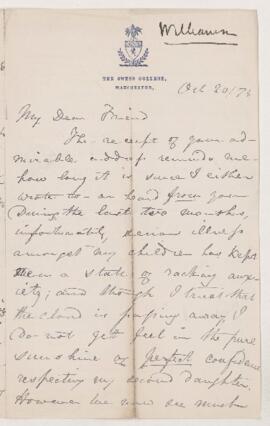 Williamson
THE OWENS COLLEGE,
MANCHESTER,
Oct 20/7
My Dear Friend
The receipt of your ad-
mirable address reminds me
how long it is since I either
wrote to or heard from you
During the last two months,
unfortunately, serious illness
amongst my children has kept
me in a state of racking anx-
iety; and though I trust that
the cloud is passing away, I
do not yet feel in the pure
sunshine of perfect confidence
respecting my second daughter.
However we now are much